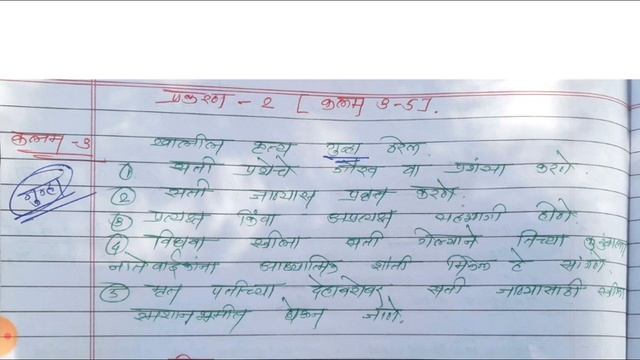 प्रकरण - २ [ कलम ३-५].
कलम - ३
खालील कृत्य गुन्हा ठरेल.
गुन्हा
① सती प्रथेचे गौरव वा प्रशंसा करणे.
② सती जाण्यास प्रवृत्त करणे.
③ प्रत्यक्ष किंवा अप्रत्यक्ष सहभागी होणे.
④ विधवा स्त्रीला सती गेल्याने तिच्या कुटुंबाला
नातेवाईकांना आध्यात्मिक शांती मिळेल हे सांगणे.
⑤ मृत पतीच्या देहाबरोबर सती जाण्यासाठी स्त्रीला
स्मशानभूमीत घेऊन जाणे.